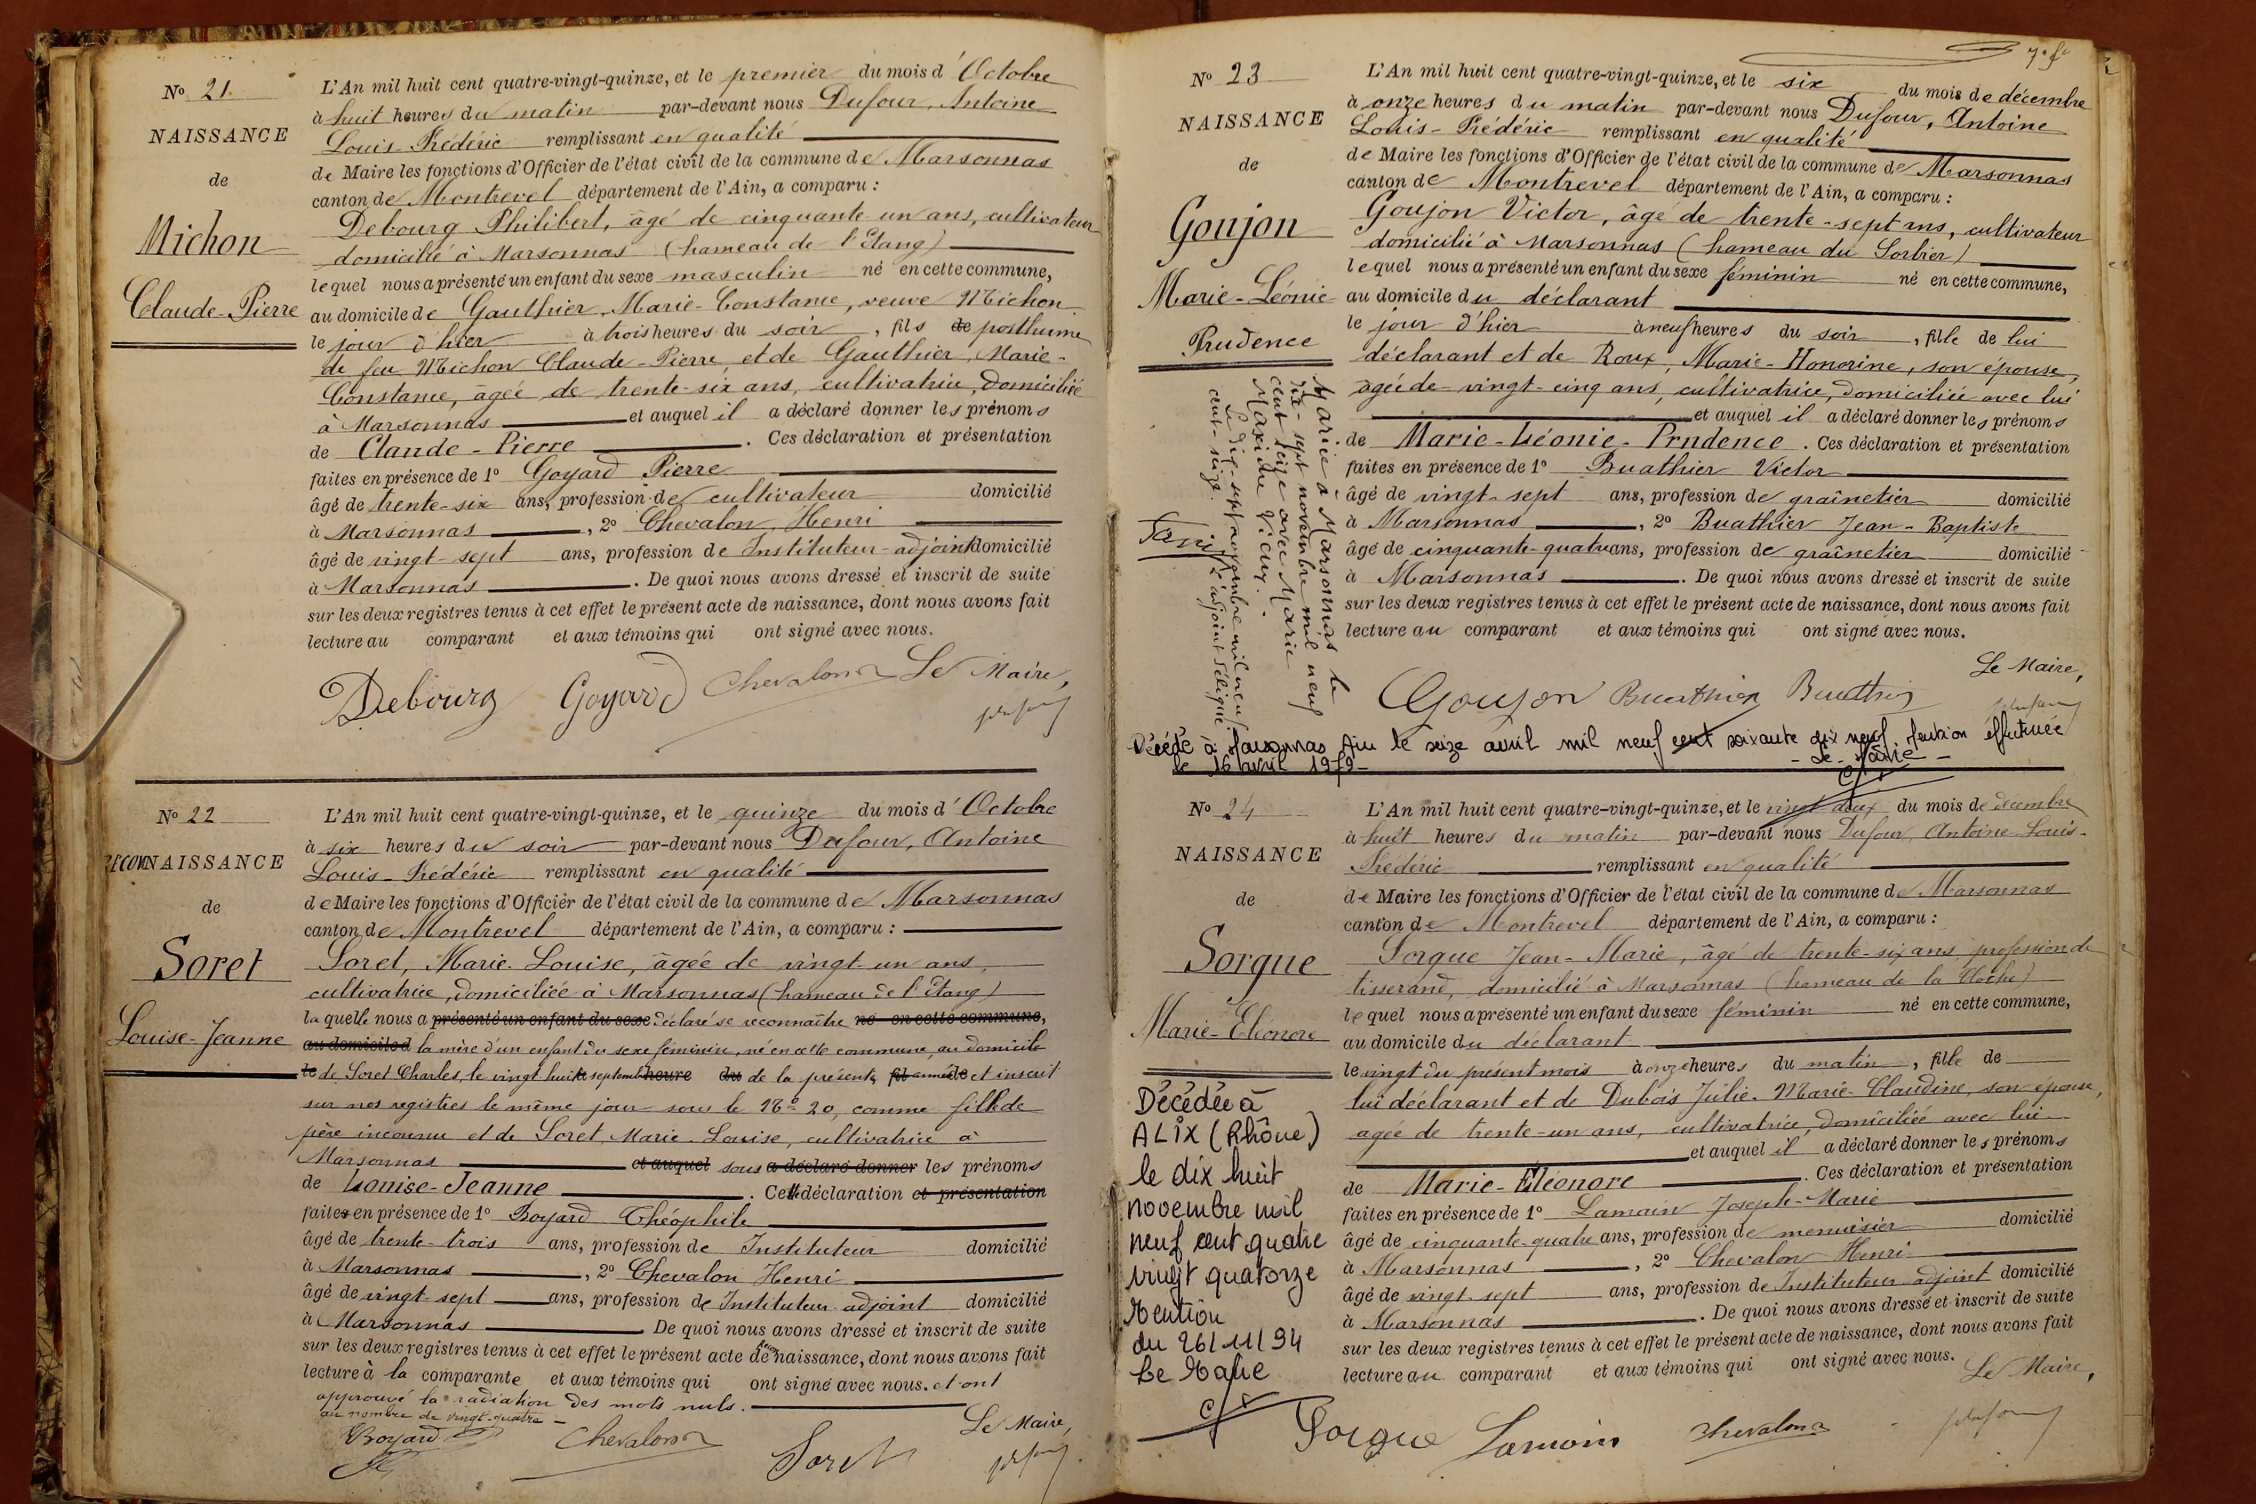 Nº 21
NAISSANCE
de
Michon
Claude-Pierre
L'An mil huit cent quatre-vingt-quinze, et le premier du mois d'Octobre
à huit heures du matin par-devant nous Dufour, Antoine
Louis-Frédéric remplissant en qualité
de Maire les fonctions d'Officier de l'état civil de la commune de Marsonnas
canton de Montrevel département de l'Ain, a comparu :
Debourg Philibert, âgé de cinquante-un ans, cultivateur
domicilié à Marsonnas (hameau de l'Etang)
lequel nous a présenté un enfant du sexe masculin né en cette commune,
au domicile de Gauthier, Marie-Constance, veuve Michon
le jour d'hier à trois heures du soir, fils de posthume
de feu Michon Claude-Pierre, et de Gauthier, Marie-
Constance, âgée de trente-six ans, cultivatrice, domiciliée
à Marsonnas et auquel il a déclaré donner les prénoms
de Claude-Pierre. Ces déclaration et présentation
faites en présence de 1º Goyard Pierre
âgé de trente-six ans, profession de cultivateur domicilié
à Marsonnas, 2º Chevalon, Henri
âgé de vingt-sept ans, profession de Instituteur-adjoint domicilié
à Marsonnas. De quoi nous avons dressé et inscrit de suite
sur les deux registres tenus à cet effet le présent acte de naissance, dont nous avons fait
lecture au comparant et aux témoins qui ont signé avec nous.
Le Maire,
Debourg Goyard Chevalon
Nº 22
RECONNAISSANCE
de
Soret
Louise-Jeanne
L'An mil huit cent quatre-vingt-quinze, et le quinze du mois d'Octobre
à six heures du soir par-devant nous Dufour, Antoine
Louis-Frédéric remplissant en qualité
de Maire les fonctions d'Officier de l'état civil de la commune de Marsonnas
canton de Montrevel département de l'Ain, a comparu :
Soret, Marie-Louise, âgée de vingt-un ans,
cultivatrice, domiciliée à Marsonnas (hameau de l'Etang)
la quelle nous a présenté un enfant du sexe déclaré se reconnaître né en cette commune,
au domicile d la mère d'un enfant du sexe féminin, né en cette commune, au domicile
le de Soret Charles, le vingt huit septembre heure du de la présente fil année de et inscrit
sur nos registres le même jour sous le Nº 20, comme fille de
père inconnu et de Soret Marie-Louise, cultivatrice à
Marsonnas et auquel sous a déclaré donner les prénoms
de Louise-Jeanne. Cette déclaration et présentation
faites en présence de 1º Boyard Théophile
âgé de trente-trois ans, profession de Instituteur domicilié
à Marsonnas, 2º Chevalon Henri
âgé de vingt-sept ans, profession de Instituteur adjoint domicilié
à Marsonnas. De quoi nous avons dressé et inscrit de suite
sur les deux registres tenus à cet effet le présent acte de reconnaissance, dont nous avons fait
lecture à la comparante et aux témoins qui ont signé avec nous. et ont
approuvé la radiation des mots nuls.
au nombre de vingt-quatre
Le Maire,
Boyard Chevalon Soret
Nº 23
NAISSANCE
de
Goujon
Marie-Léonie
Prudence
L'An mil huit cent quatre-vingt-quinze, et le six du mois de décembre
à onze heures du matin par-devant nous Dufour, Antoine
Louis-Frédéric remplissant en qualité
de Maire les fonctions d'Officier de l'état civil de la commune de Marsonnas
canton de Montrevel département de l'Ain, a comparu :
Goujon Victor, âgé de trente-sept ans, cultivateur
domicilié à Marsonnas (hameau du Sorbier)
lequel nous a présenté un enfant du sexe féminin né en cette commune,
au domicile du déclarant
le jour d'hier à neuf heures du soir, fille de lui
déclarant et de Roux, Marie-Honorine, son épouse,
âgée de vingt-cinq ans, cultivatrice, domiciliée avec lui
et auquel il a déclaré donner les prénoms
de Marie-Léonie-Prudence. Ces déclaration et présentation
faites en présence de 1º Buathier Victor
âgé de vingt-sept ans, profession de graînetier domicilié
à Marsonnas, 2º Buathier Jean-Baptiste
âgé de cinquante-quatre ans, profession de graînetier domicilié
à Marsonnas. De quoi nous avons dressé et inscrit de suite
sur les deux registres tenus à cet effet le présent acte de naissance, dont nous avons fait
lecture au comparant et aux témoins qui ont signé avec nous.
Le Maire,
Goujon Buathier Buathier
Marié à Marsonnas le
dix-sept novembre mil neuf
cent seize avec Marie
Maxime Vieux.
Le dix-sept novembre mil neuf
cent-seize. L'adjoint délégué
Décédé à Marsonnas Ain le seize avril mil neuf cent soixante dix neuf mention effectuée
le 16 avril 1979 - Le Maire -
Nº 24
NAISSANCE
de
Sorgue
Marie-Eléonore
L'An mil huit cent quatre-vingt-quinze, et le vingt deux du mois de décembre
à huit heures du matin par-devant nous Dufour, Antoine-Louis-
Frédéric remplissant en qualité
de Maire les fonctions d'Officier de l'état civil de la commune de Marsonnas
canton de Montrevel département de l'Ain, a comparu :
Sorgue Jean-Marie, âgé de trente-six ans, profession de
tisserand, domicilié à Marsonnas (hameau de la Cloche)
lequel nous a présenté un enfant du sexe féminin né en cette commune,
au domicile du déclarant
le vingt du présent mois à onze heures du matin, fille de
lui déclarant et de Dubois Julie-Marie-Claudine, son épouse,
agée de trente-un ans, cultivatrice, domiciliée avec lui
et auquel il a déclaré donner les prénoms
de Marie-Eléonore. Ces déclaration et présentation
faites en présence de 1º Lamain Joseph-Marie
âgé de cinquante-quatre ans, profession de menuisier domicilié
à Marsonnas, 2º Chevalon Henri
âgé de vingt-sept ans, profession de Instituteur adjoint domicilié
à Marsonnas. De quoi nous avons dressé et inscrit de suite
sur les deux registres tenus à cet effet le présent acte de naissance, dont nous avons fait
lecture au comparant et aux témoins qui ont signé avec nous.
Le Maire,
Sorgue Lamain Chevalon
Décédée à
ALIX (Rhône)
le dix huit
novembre mil
neuf cent quatre
vingt quatorze
Mention
du 26/11/94
Le Maire